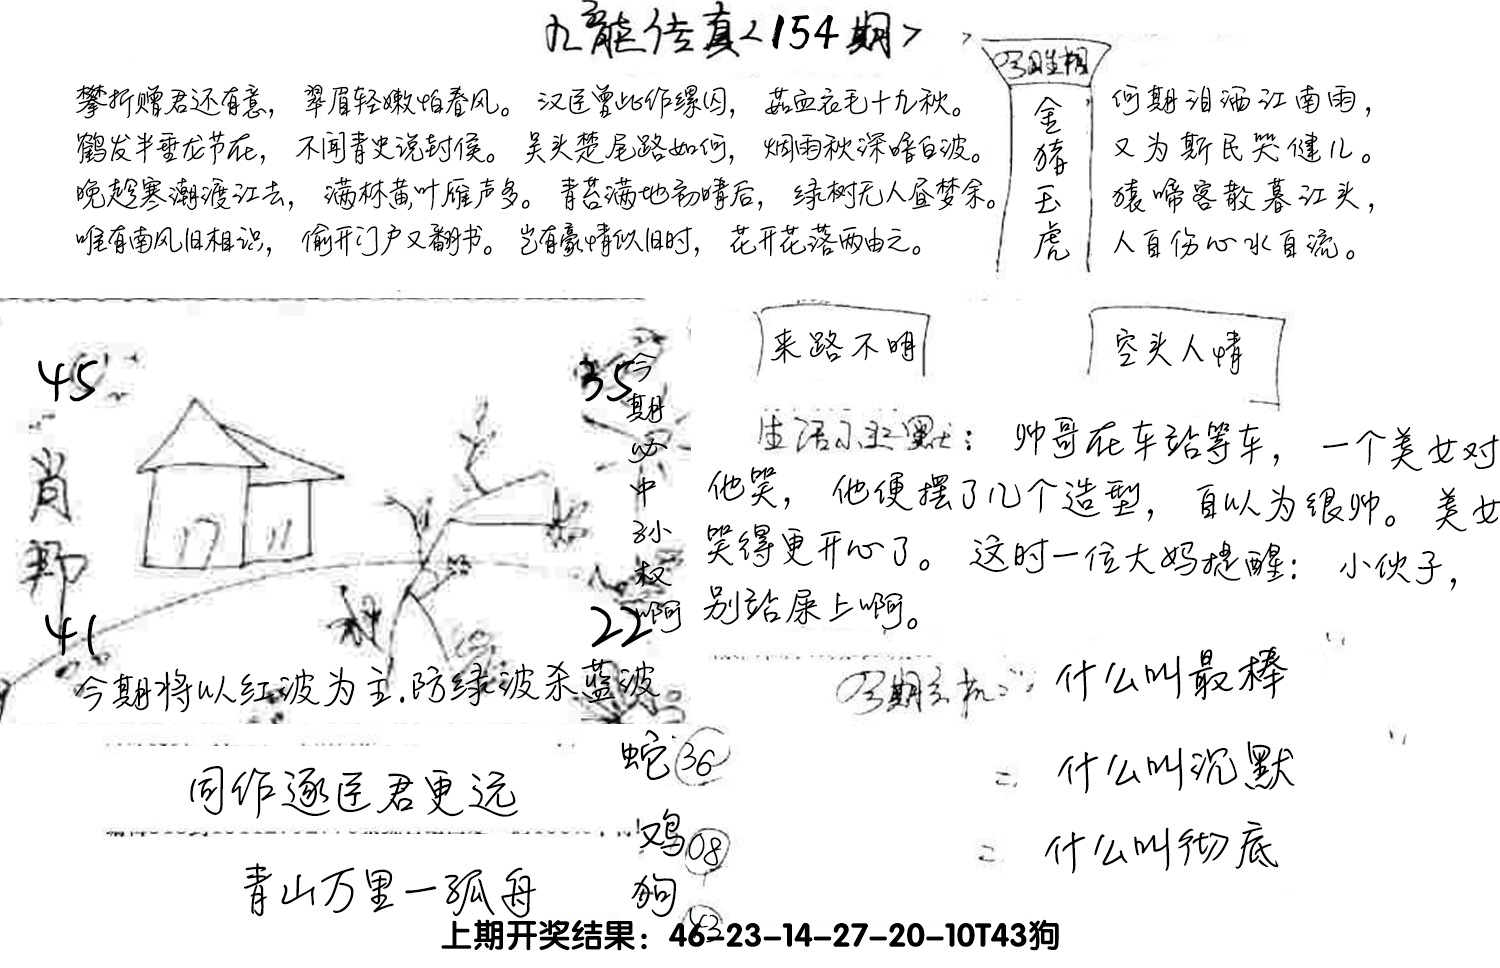 九龙传真<154期>
攀折赠君还有意，翠眉轻嫩怕春风。汉臣曾此作缧囚，茹血衣毛十九秋。
鹤发半垂龙节在，不闻青史说封侯。吴头楚尾路如何，烟雨秋深暗白波。
晚趁寒潮渡江去，满林黄叶雁声多。青苔满地初晴后，绿树无人昼梦余。
唯有南风旧相识，偷开门户又翻书。岂有豪情似旧时，花开花落两由之。
金猪玉虎
何期泪洒江南雨，
又为斯民哭健儿。
猿啼客散暮江头，
人自伤心水自流。
45
35
肖
41
22
今期必中孙权啊
今期将以红波为主.防绿波杀蓝波
来路不明
空头人情
生活小幽默：帅哥在车站等车，一个美女对
他笑，他便摆了几个造型，自以为很帅。美女
笑得更开心了。这时一位大妈提醒：小伙子，
别站屎上啊。
什么叫最棒
什么叫沉默
什么叫彻底
同作逐臣君更远
青山万里一孤舟
蛇36
鸡08
狗43
上期开奖结果：46-23-14-27-20-10T43狗